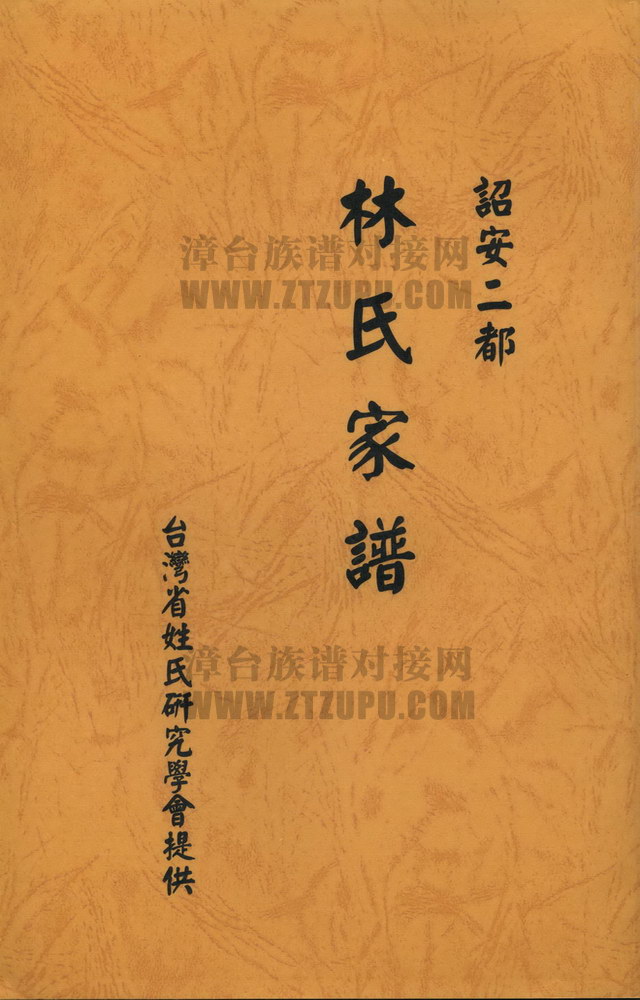 詔安二都
林氏家譜
台灣省姓氏研究學會提供
漳台族谱对接网
WWW.ZTZUPU.COM
漳台族谱对接网
WWW.ZTZUPU.COM